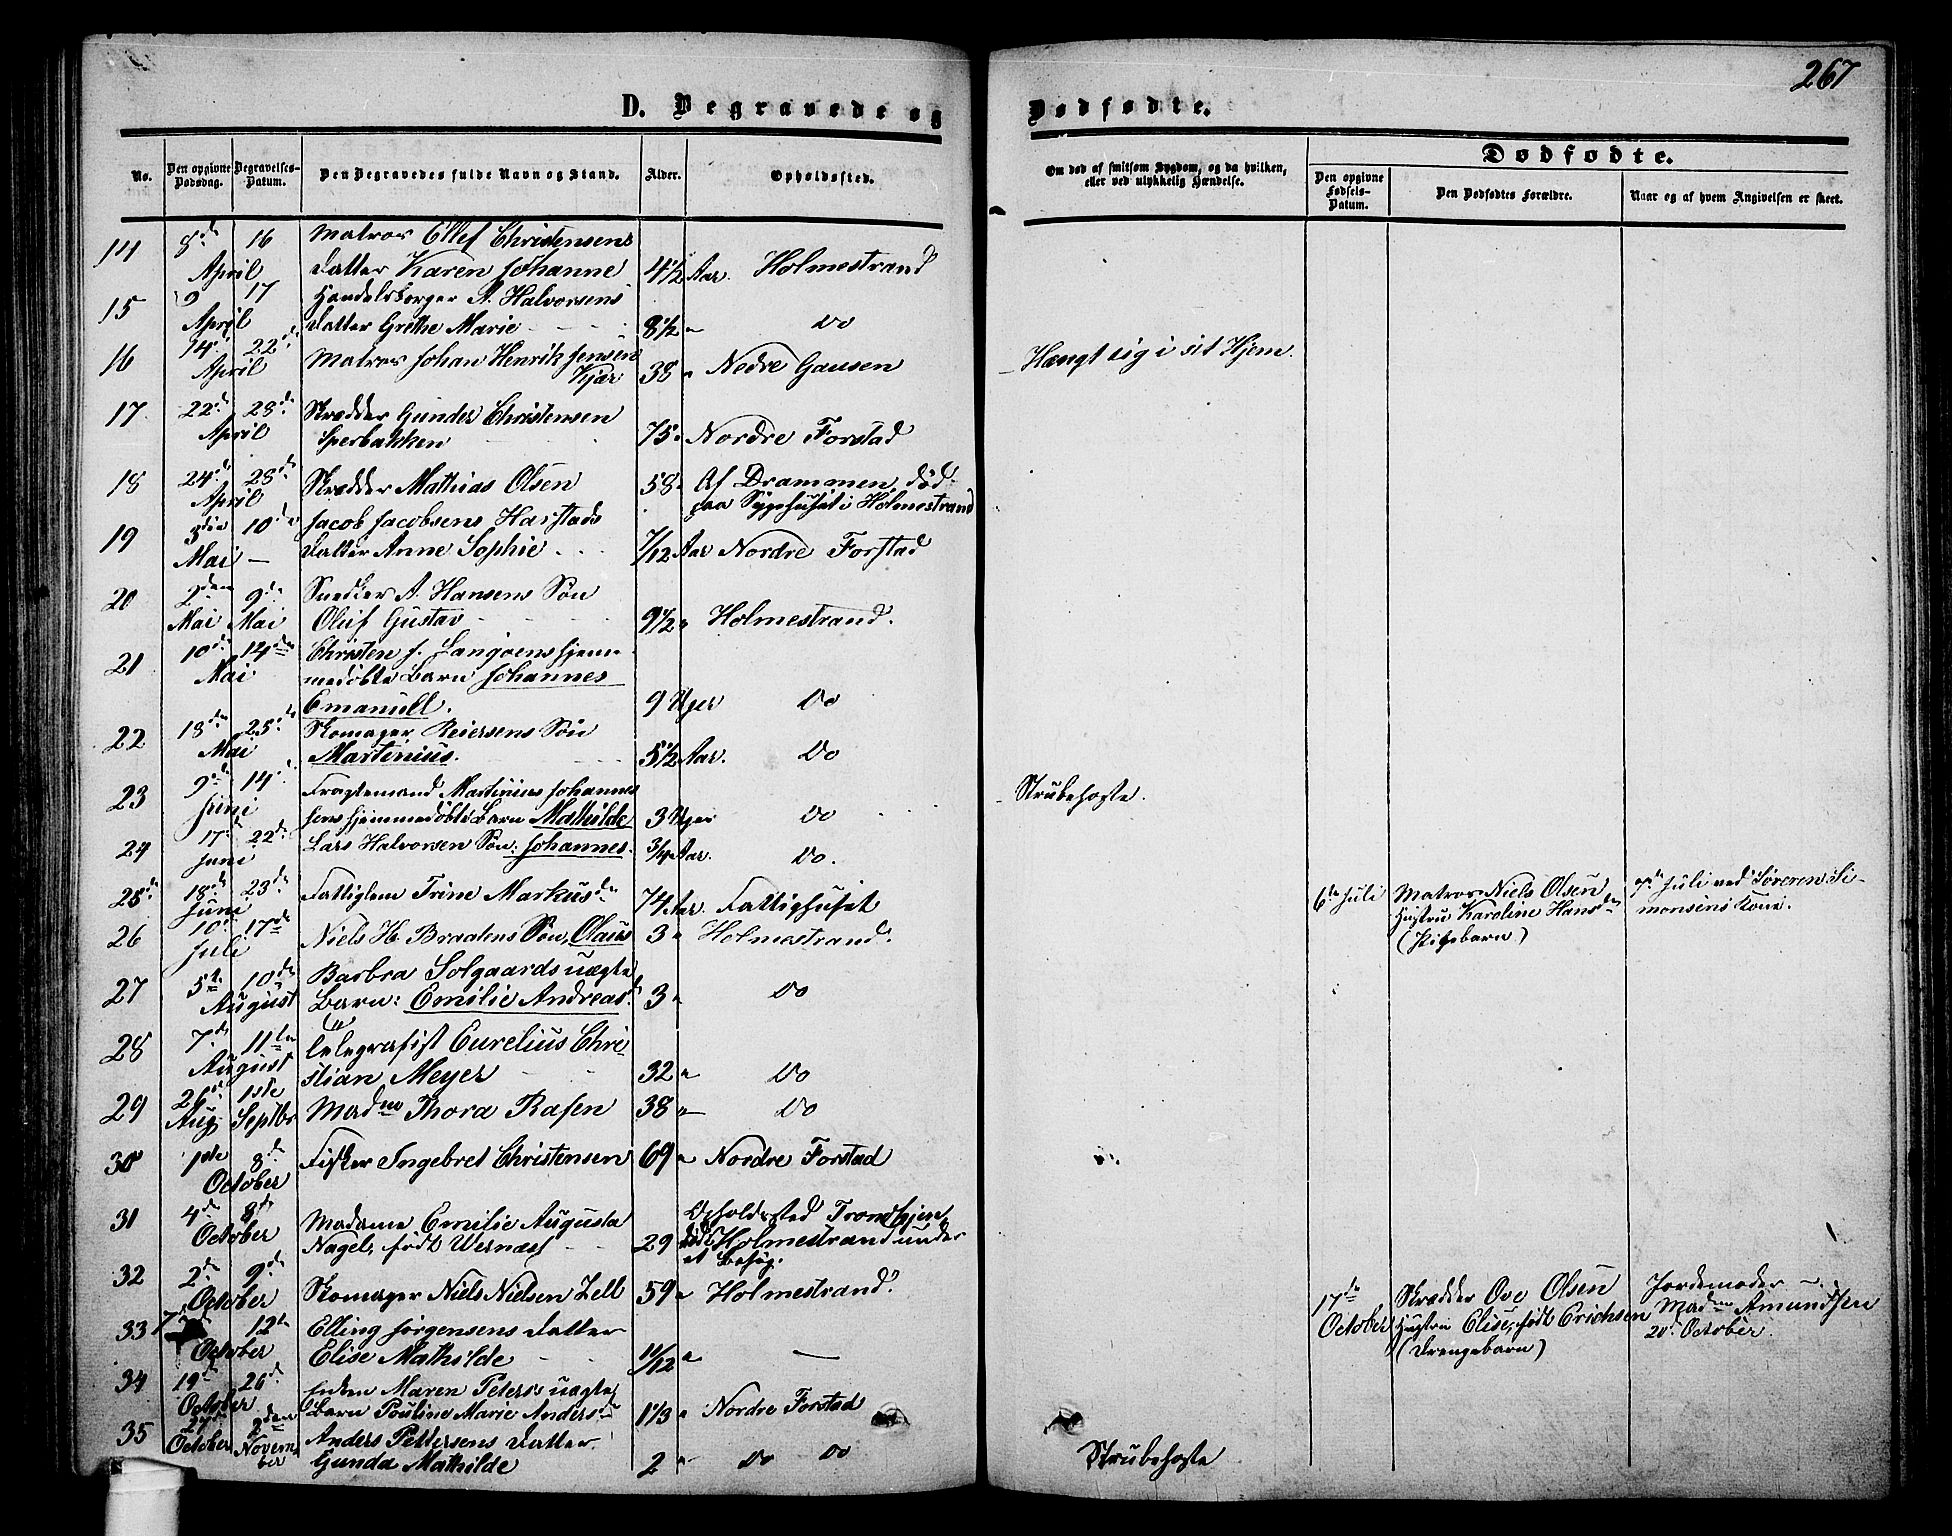 267
D. Begravede og Dødfødte.
No. | Den opgivne Dødsdag. | Begravelses-Datum. | Den Begravedes fulde Navn og Stand. | Alder. | Opholdssted. | Om død af smitsom Sygdom, og da hvilken, eller ved ulykkelig Hændelse. | Dødfødte.
Den opgivne Fødsels-Datum. | Den Dødfødtes Forældre. | Naar og af hvem Angivelsen er skeet.
14 8de 16 Matros Ellef Christensens
April Datter Karen Johanne 4½ Aar. Holmestrand
15 9 17 Handelsborger A. Halvorsens
April Datter Grethe Marie 8½ " Do
16 14de 22de Matros Johan Henrik Jensen
April Kjær 38 " Nedre Gausen Hængt sig i sit Hjem.
17. 22de 28de Skrædder Gunder Christensen
April Sperbakken 75 " Nordre Forstad
18 24de 28de Skrædder Mathias Olsen 58 " Af Drammen, død
April paa Sygehuset i Holmestrand
19 3die 10de Jacob Jacobsens Harstads
Mai — Datter Anne Sophie 7/12 Aar Nordre Forstad
20 2den 9de Snedker A. Hansens Søn
Mai Mai Oluf Gustav 9½ " Holmestrand.
21 10de 14den Christen J. Langøens hjem-
Mai medøbte Barn Johannes
Emanuell. 9 Uger Do
22 18den 25de Skomager Reiersens Søn
Mai Martinius. 5½ Aar. Do
23 9de 14de Fragtemand Martinius Johannes
Juni sens hjemmedøbte Barn Mathilde 3 Uger Do Strubehoste.
24 17de 22de Lars Halvorsen Søn: Johannes. 3/4 Aar. Do.
Juni
25 18de 23de Fattiglem Trine Markusdn 74 Aar. Fattighuset
Juni
6te Juli Matros Niels Olsen 7de Juli ved Søreren Si-
Hustru Karoline Hansdn monsens Kone.
(Pigebarn)
26 10de 17de Niels H. Braatens Søn, Olaus 3 " Holmestrand.
Juli
27 5te 10de Barbra Solgaards uægte
August Barn: Emilie Andreasd. 3 " Do
28 7de 11te Telegrafist Eurelius Chri-
August stian Meyer 32 " Do
29 26de 1ste Madm Thora Rafen 38 " Do
Aug Septbr
30 1ste 8de Fisker Ingebret Christensen 69 " Nordre Forstad
October
31 4de 8de Madame Emilie Augusta Opholdssted Trondhjem,
October Nagel, født Wernæs 29 død i Holmestrand under
et Besøg.
32 2de 9de Skomager Niels Nielsen Zell 59 " Holmestrand.
October
17de Skrædder Ove Olsen Jordemoder
October Hustru Elise, født Erichsen Madm Amundsen
(Drengebarn) 20de October.
33 7 12te Elling Jørgensens Datter
October Elise Mathilde 11/12 " —
34 19de 26de Maren Peters: uægte
October Barn Pouline Marie Andersd. 1 1/3 " Nordre Forstad
35 27de 2den Anders Pettersens Datter
October Novem- Gunda Mathilde 2 " Do Do Strubehoste
ber